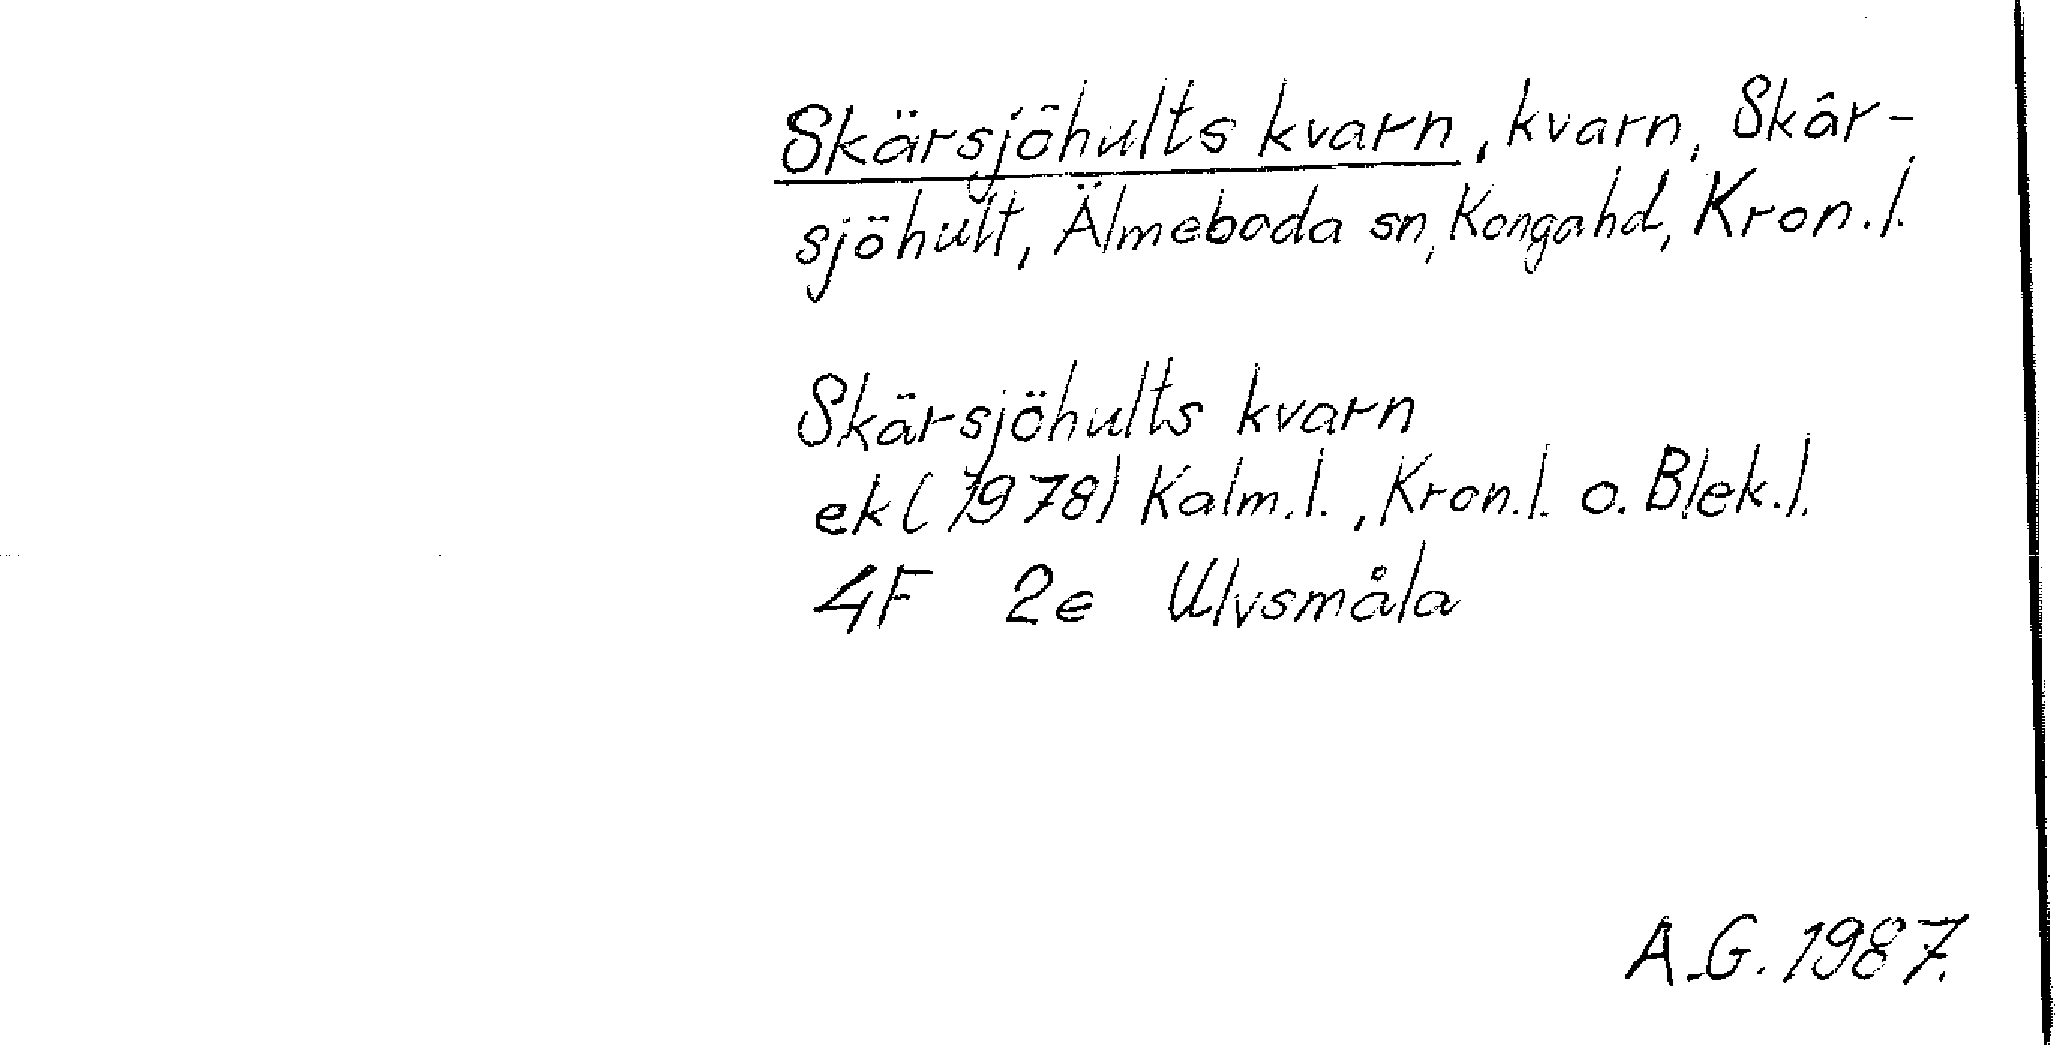 Skärsjöhults kvarn, kvarn, Skär-
sjöhult, Älmeboda sn, Konga hd, Kron.l.
Skärsjöhults kvarn
ek (1978) Kalm.l., Kron.l. o. Blek.l.
4F 2e Ulvsmåla
A.G. 1987.